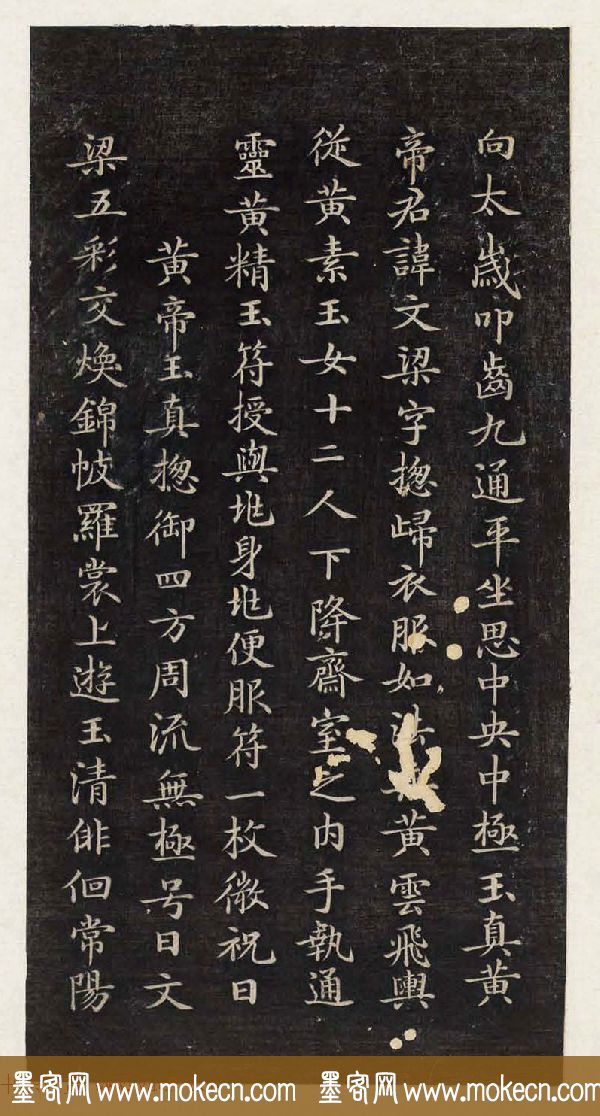 向太歲叩齒九通平坐思中央中極玉真黃
帝君諱文梁字揔歸衣服如黃雲飛輿
從黃素玉女十二人下降齋室之内手執通
靈黃精玉符授與兆身兆便服符一枚微祝曰
黃帝玉真揔御四方周流無極号曰文
梁五彩交煥錦帔羅裳上遊玉清俳佪常陽
墨客网 www.mokecn.com 墨客网 www.mokecn.com